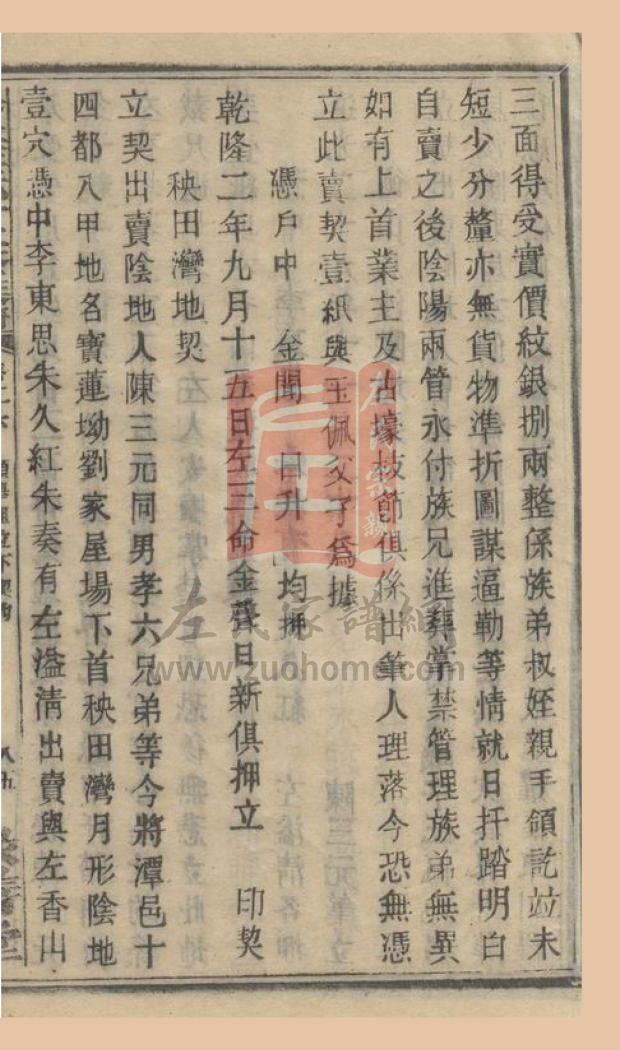 三面得受實價紋銀捌兩整係族弟叔姪親手領訖竝未
短少分釐亦無貨物準折圖謀逼勒等情就日扞踏明白
自賣之後陰陽兩管永付族兄進葬掌禁管理族弟無異
如有上首業主及古壕枝節俱係出筆人理落今恐無憑
立此賣契壹紙與玉佩父子爲據
憑戶中 金聞 日升 均押
乾隆二年九月十五日左三命金聲日新俱押立 印契
秧田灣地契
立契出賣陰地人陳三元同男孝六兄弟等今將潭邑十
四都八甲地名寶蓮坳劉家屋場下首秧田灣月形陰地
壹穴憑中李東思朱久紅朱奏有左溢淸出賣與左香山
左氏家譜網
www.zuohome.com